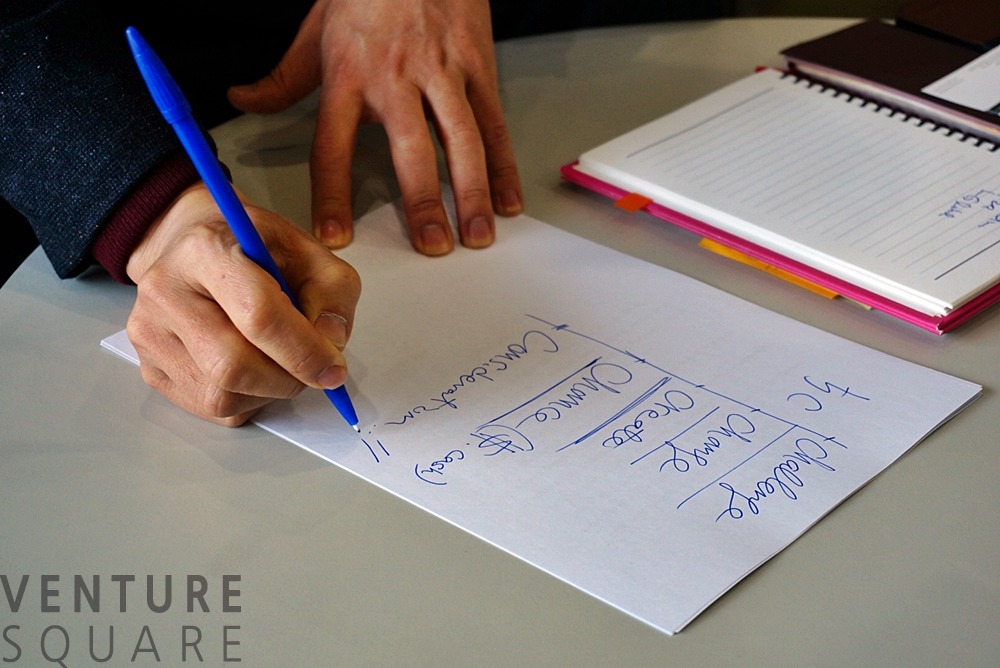 5C
Challenge
Change
Create
Chance ($: cash)
Consideration!!
VENTURE
SQUARE